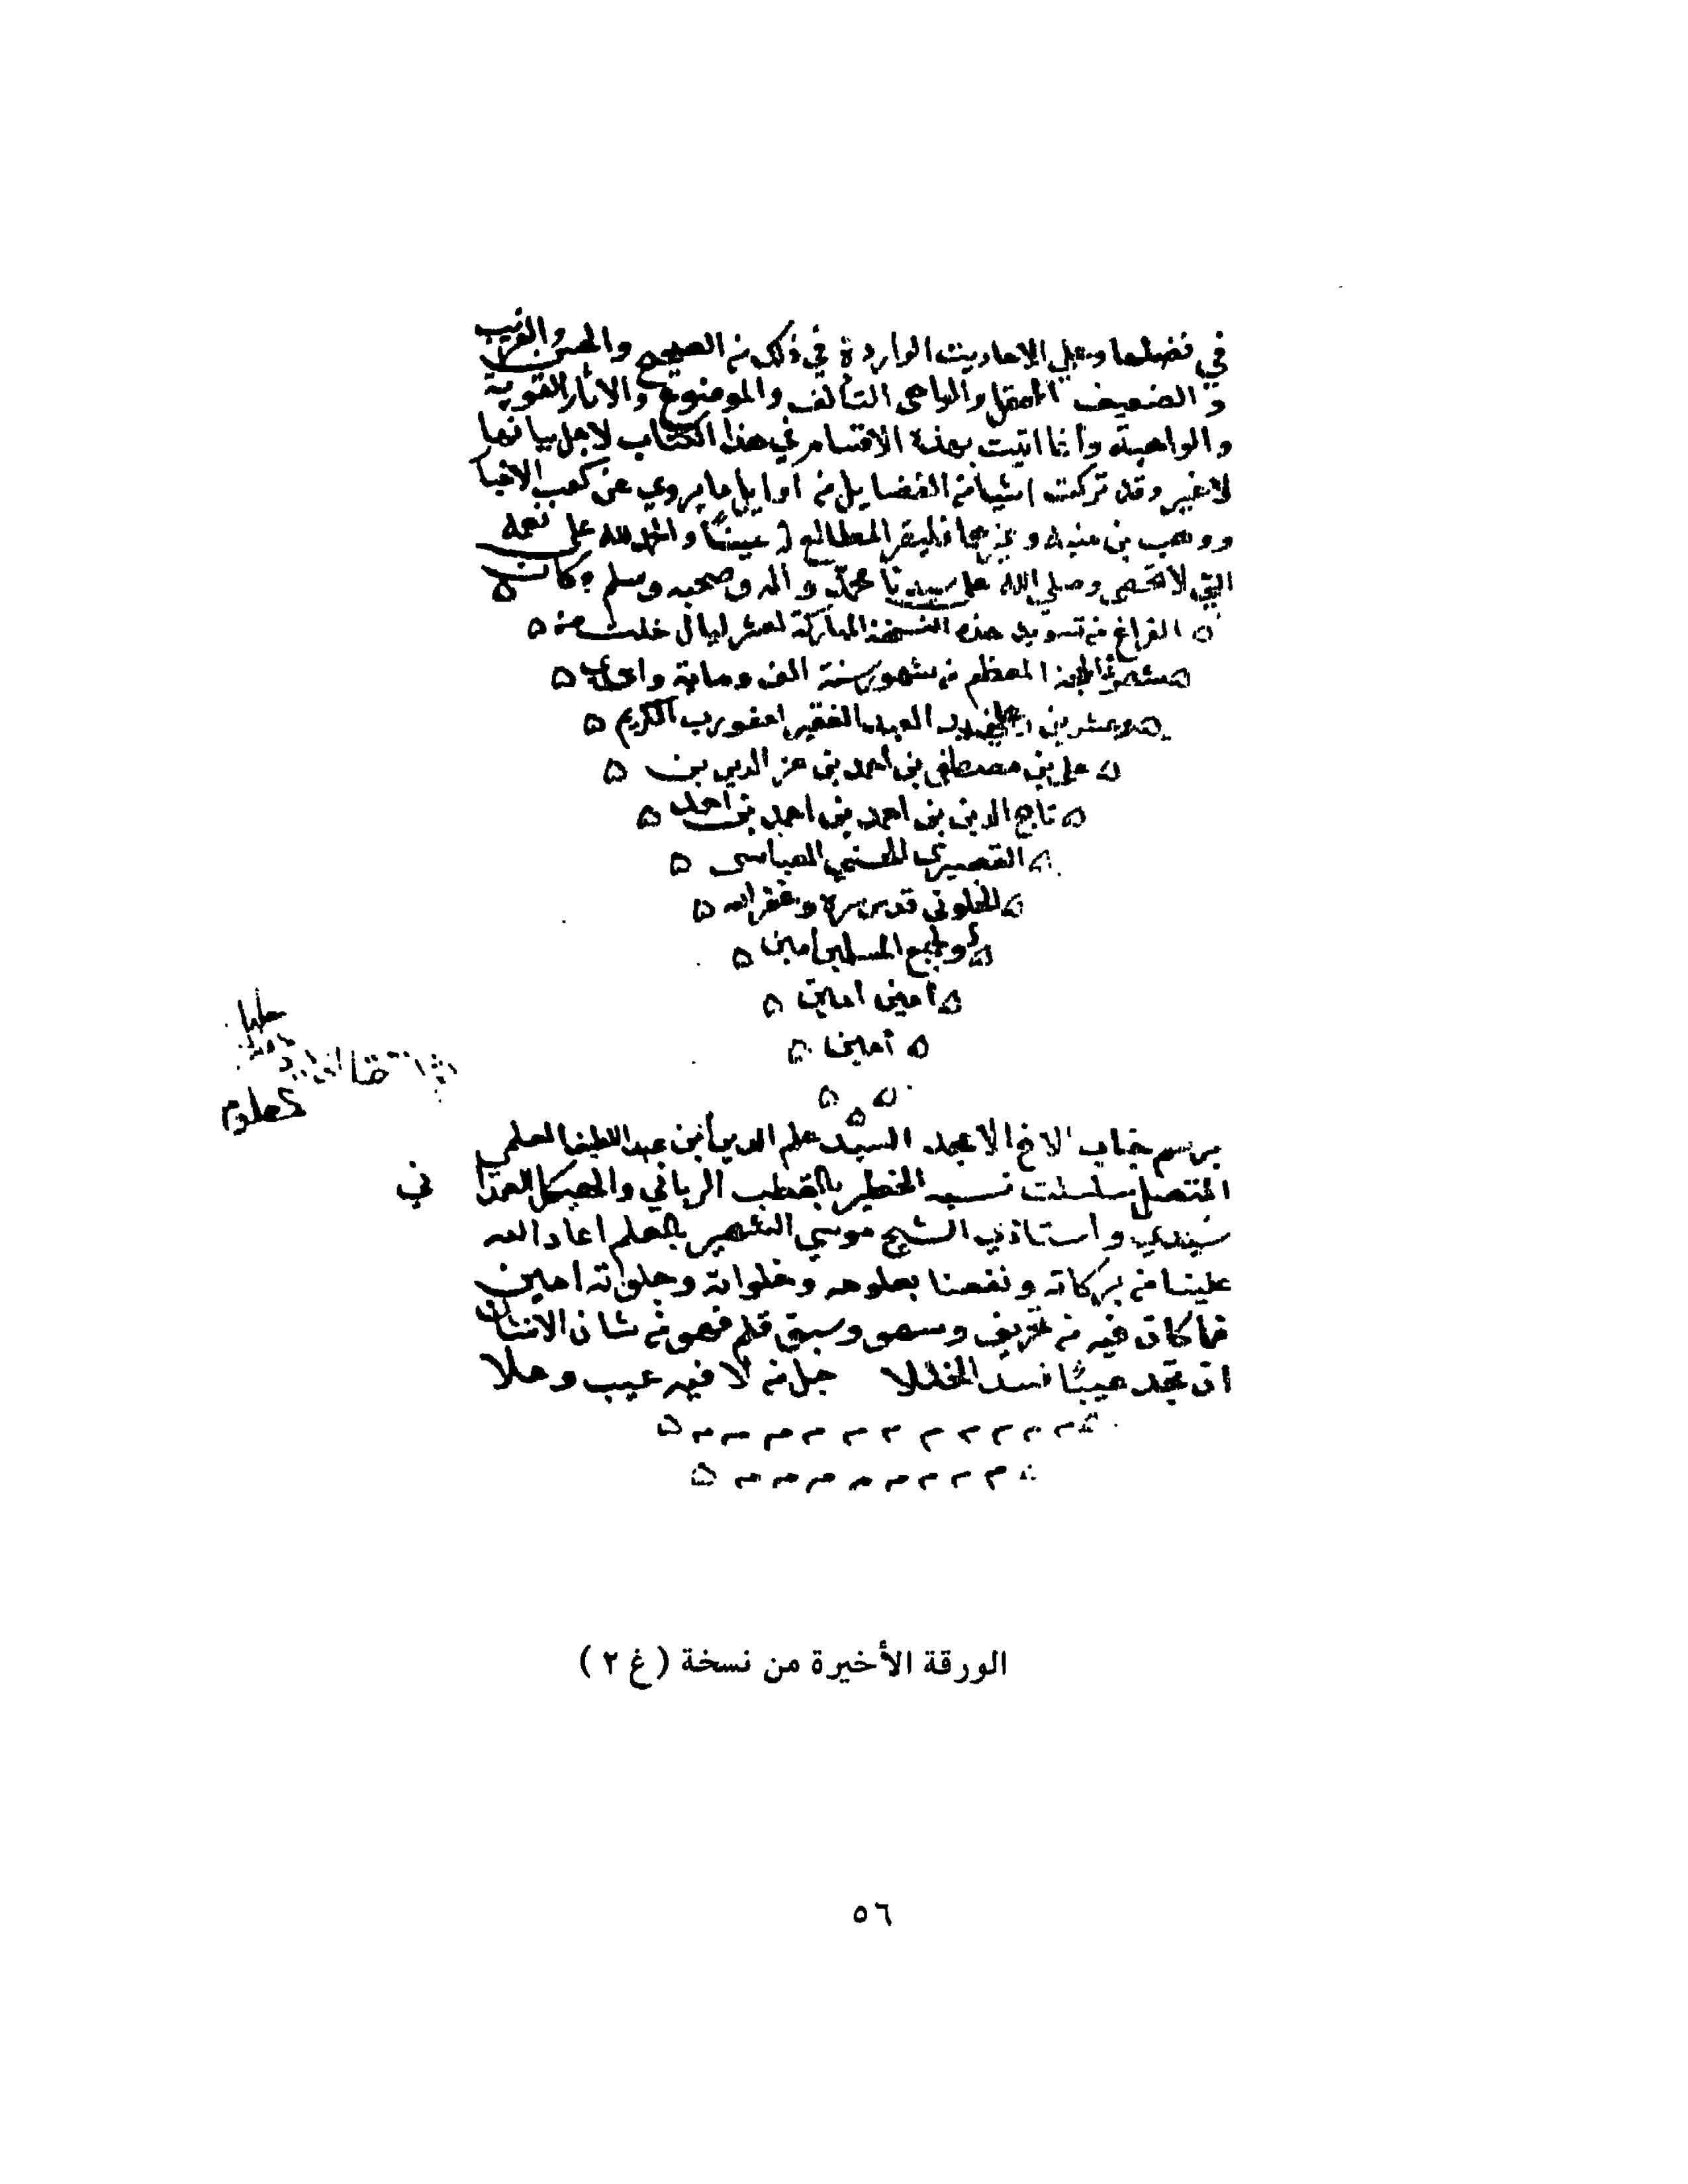 في فضلها وعلي الاحاديث الواردة في ذلك من الصحيح والحسن والغريب
والضعيف والواهي التالف والموضوع والاثار القوية
والواهية وانما اتيت بهذه الاقسام في هذا الكتاب لاجل بيانها
لا غير وقد تركت اشيا من الفضايل من اوايل ما يروي عن كعب الاخبا
ووهب بن منبه وغيرهما المطالع عينًا والحمد لله على نعمه
التي لا تحصى وصلي الله على سيدنا محمد واله وصحبه وسلم وكان
الفراغ من تسويد هذه النسخة المباركة لعشر ليال خلت من
الحجة المعظم من شهور سنة الف وماية واحدي
وعشرين العبد الفقير لعفو رب الكريم
علي بن مصطفي بن احمد بن عز الدين بن
تاج الدين بن احمد بن احمد بن احمد
العباسي
الخلوتي قدس سره وغفر له
ولجميع المسلمين امين
امين امين
امين
برسم جناب الاخ الامجد السيد علم الدين ابن عبد اللطيف العلمي
المتصل سلسلت نسبه الخطير بالقطب الرباني والهيكل الصمدا ني
سيدي واستاذي الشيخ موسي الشهير بالعلم اعاد الله
علينا من بركاته ونفعنا بعلومه وخلواته وجلواته امين
فما كان فيه من تحريف وسهو وسبق قلم فهو من شان الانسان
ان تجد عيبًا فسد الخللا جل من لا فيه عيب وعلا
الورقة الأخيرة من نسخة (غ ٢)
٥٦